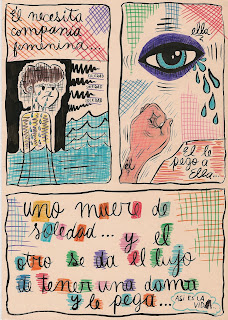 El necesita
compañía
femenina...
SOLEDAD
SOLEDAD
SOLEDAD
ella
él
él le
pegó a
Ella.
uno muere de
soledad... y el
otro se da el lujo
d tener una dama
y le pega...
(ASÍ ES LA
VIDA)